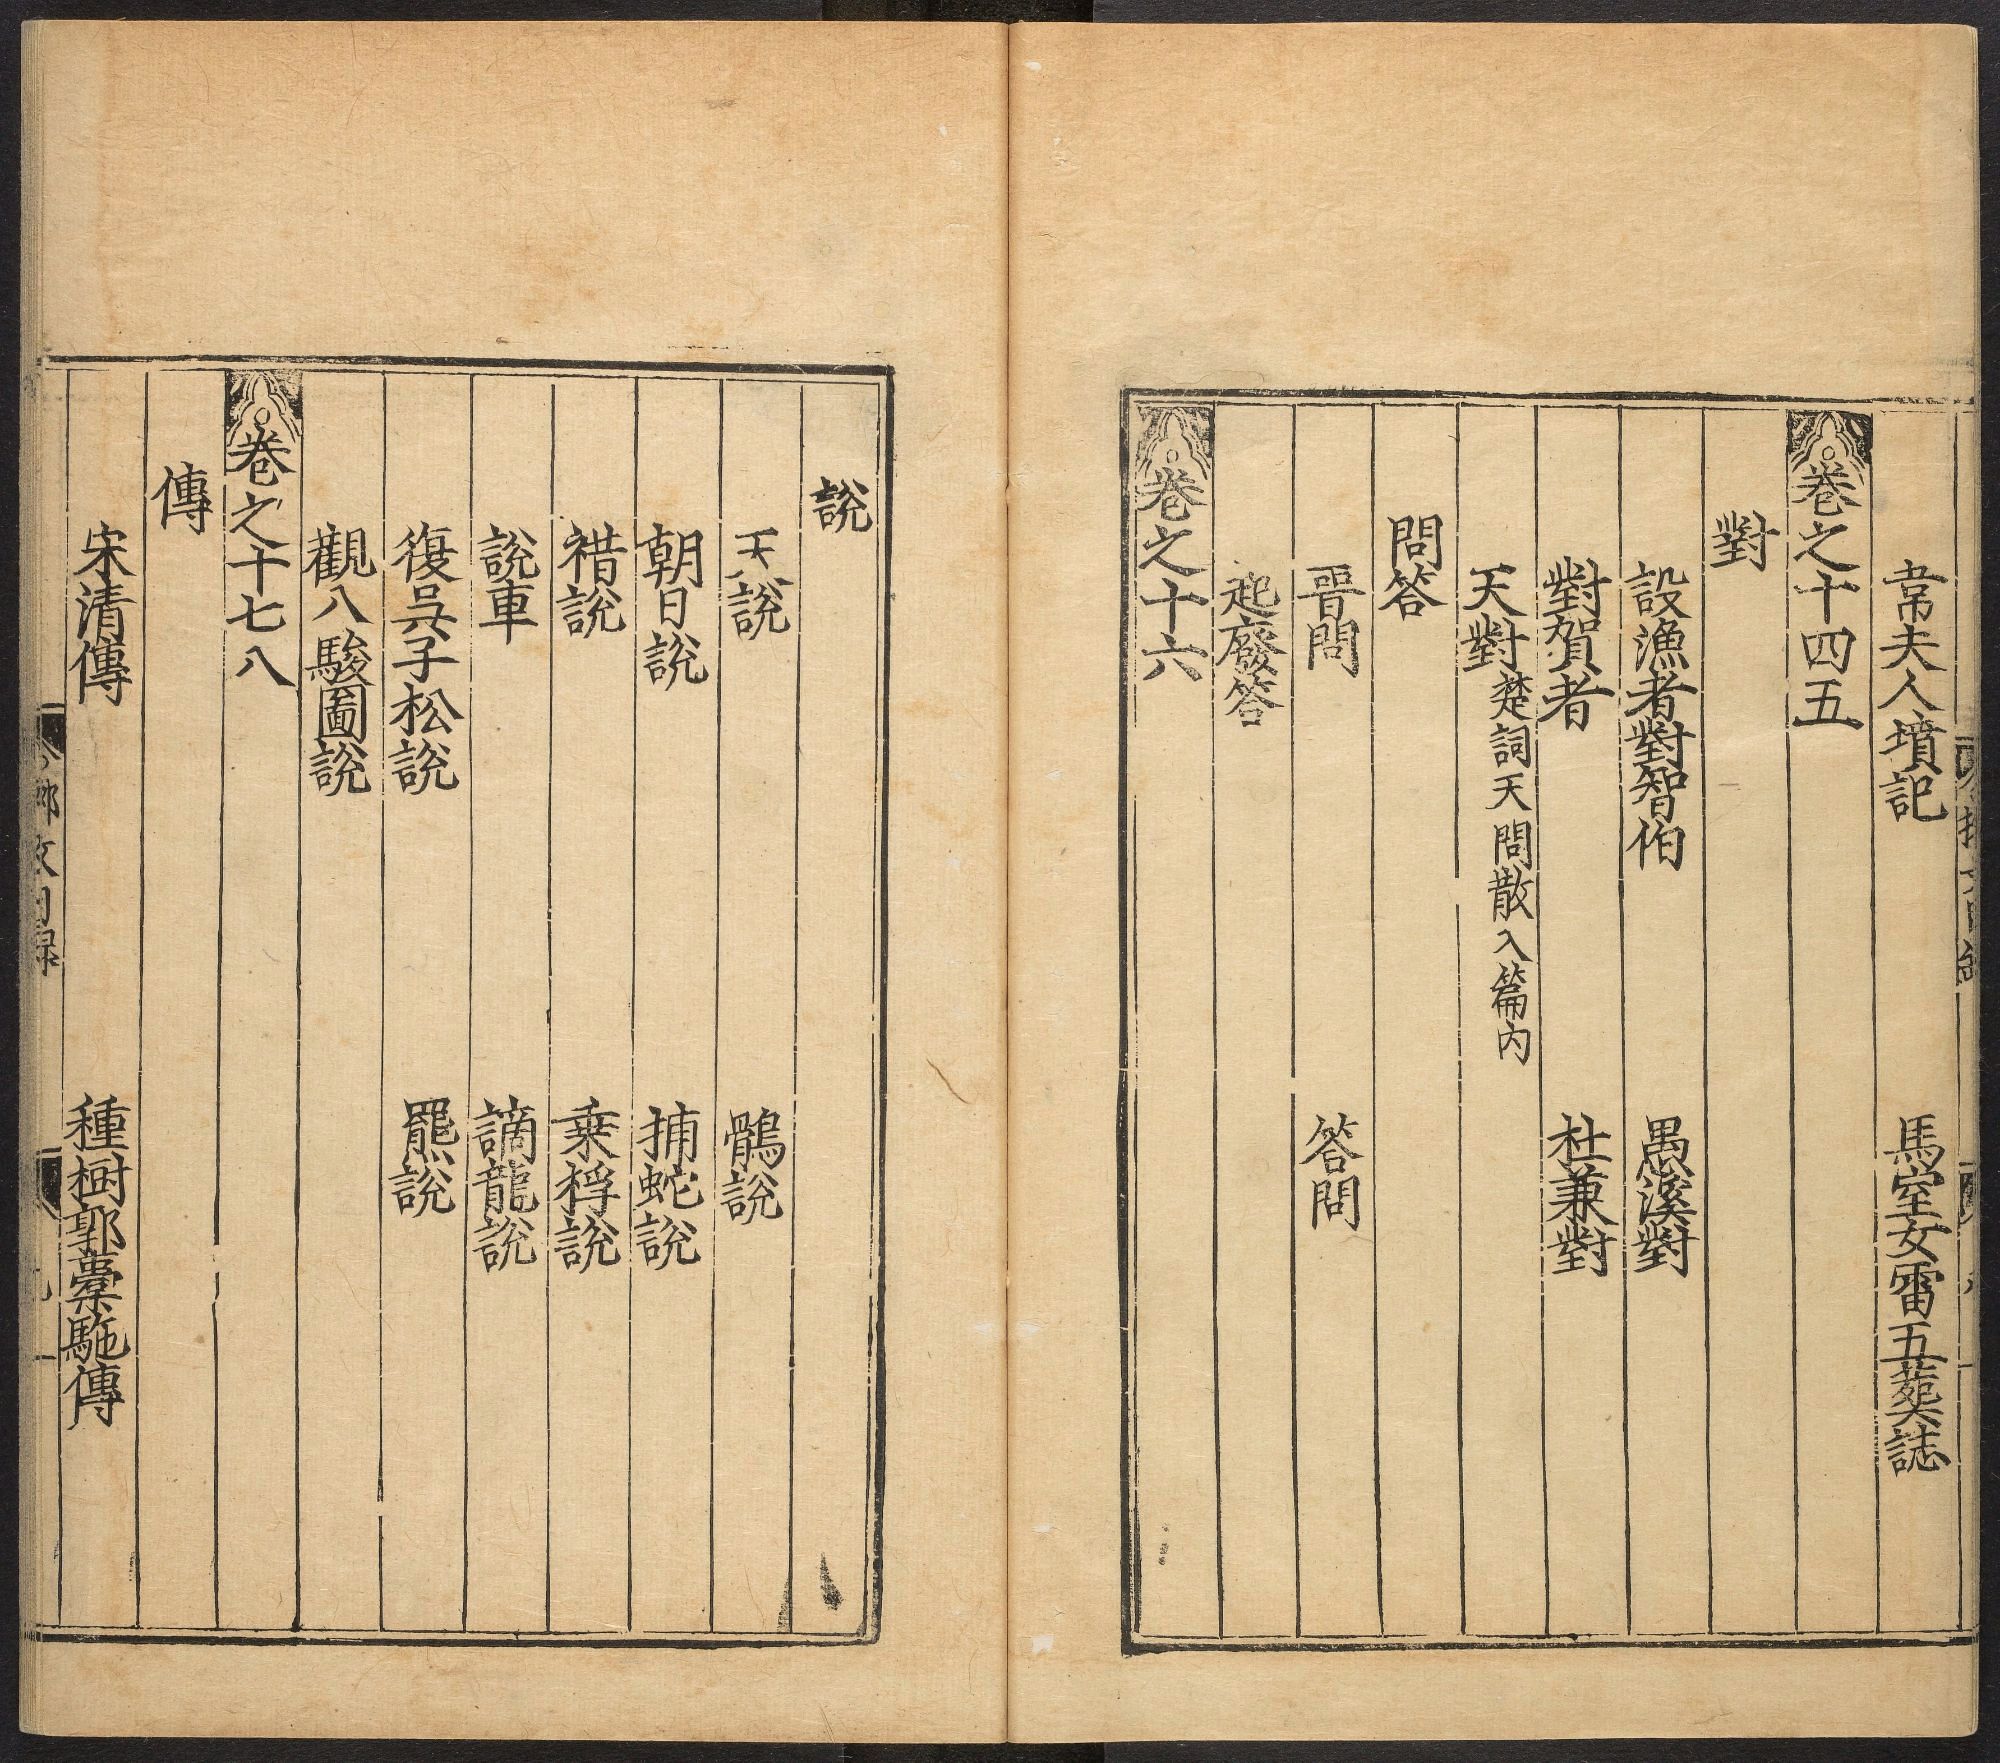 韋夫人墳記　馬室女雷五葬誌
卷之十四五
對
設漁者對智伯　愚溪對
對賀者　杜兼對
天對楚詞天問散入篇内
問答
晋問　答問
起廢答
卷之十六
說
天說　鶻說
朝日說　捕蛇說
䄍說　乗桴說
說車　謫龍說
復吳子松說　羆說
觀八駿圖說
卷之十七八
傳
宋清傳　種樹郭槖駞傳
文目録
九